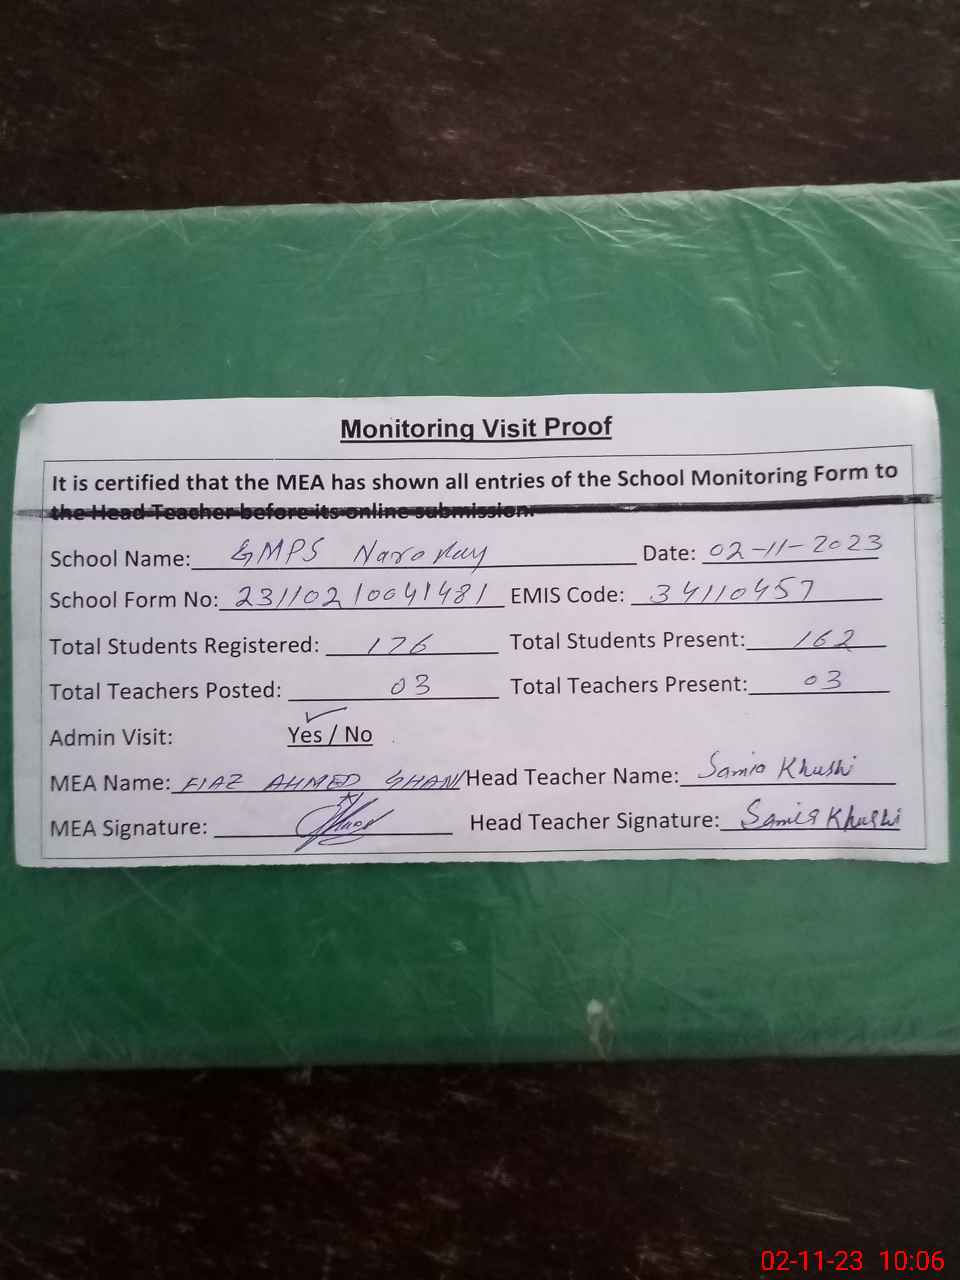 Monitoring Visit Proof
It is certified that the MEA has shown all entries of the School Monitoring Form to
the Head Teacher before its online submission.
School Name: GMPS Date: 02-11-2023
School Form No: 23110210041481 EMIS Code: 34110457
Total Students Registered: 176 Total Students Present: 162
Total Teachers Posted: 03 Total Teachers Present: 03
Admin Visit: Yes / No
MEA Name: FIAZ AHMED GHANI Head Teacher Name: Samia Khushi
MEA Signature: Head Teacher Signature: Samia Khushi
02-11-23 10:06